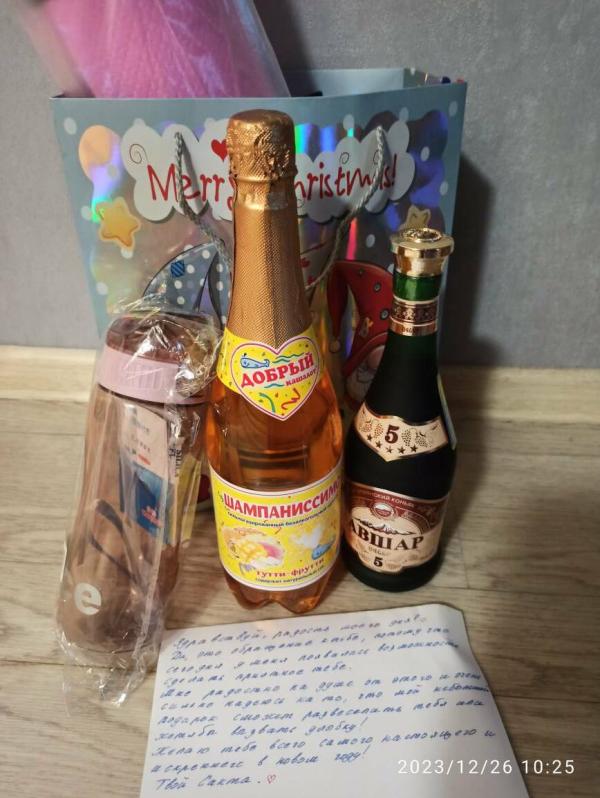 Merry Christmas!
ДОБРЫЙ
кашалот
ШАМПАНИССИМО
тутти-фрутти
5
коньяк
АВШАР
5
e
Здравствуй, радость моего дня!
Да, это обращение к тебе, потому что
сегодня у меня появилась возможность
сделать приятное тебе.
Мне радостно на душе от этого и очень
сильно надеюсь на то, что мой небольшой
подарок сможет развеселить тебя или
хотябы вызвать улыбку!
Желаю тебе всего самого настоящего и
искреннего в новом году!
Твой Санта.
2023/12/26 10:25